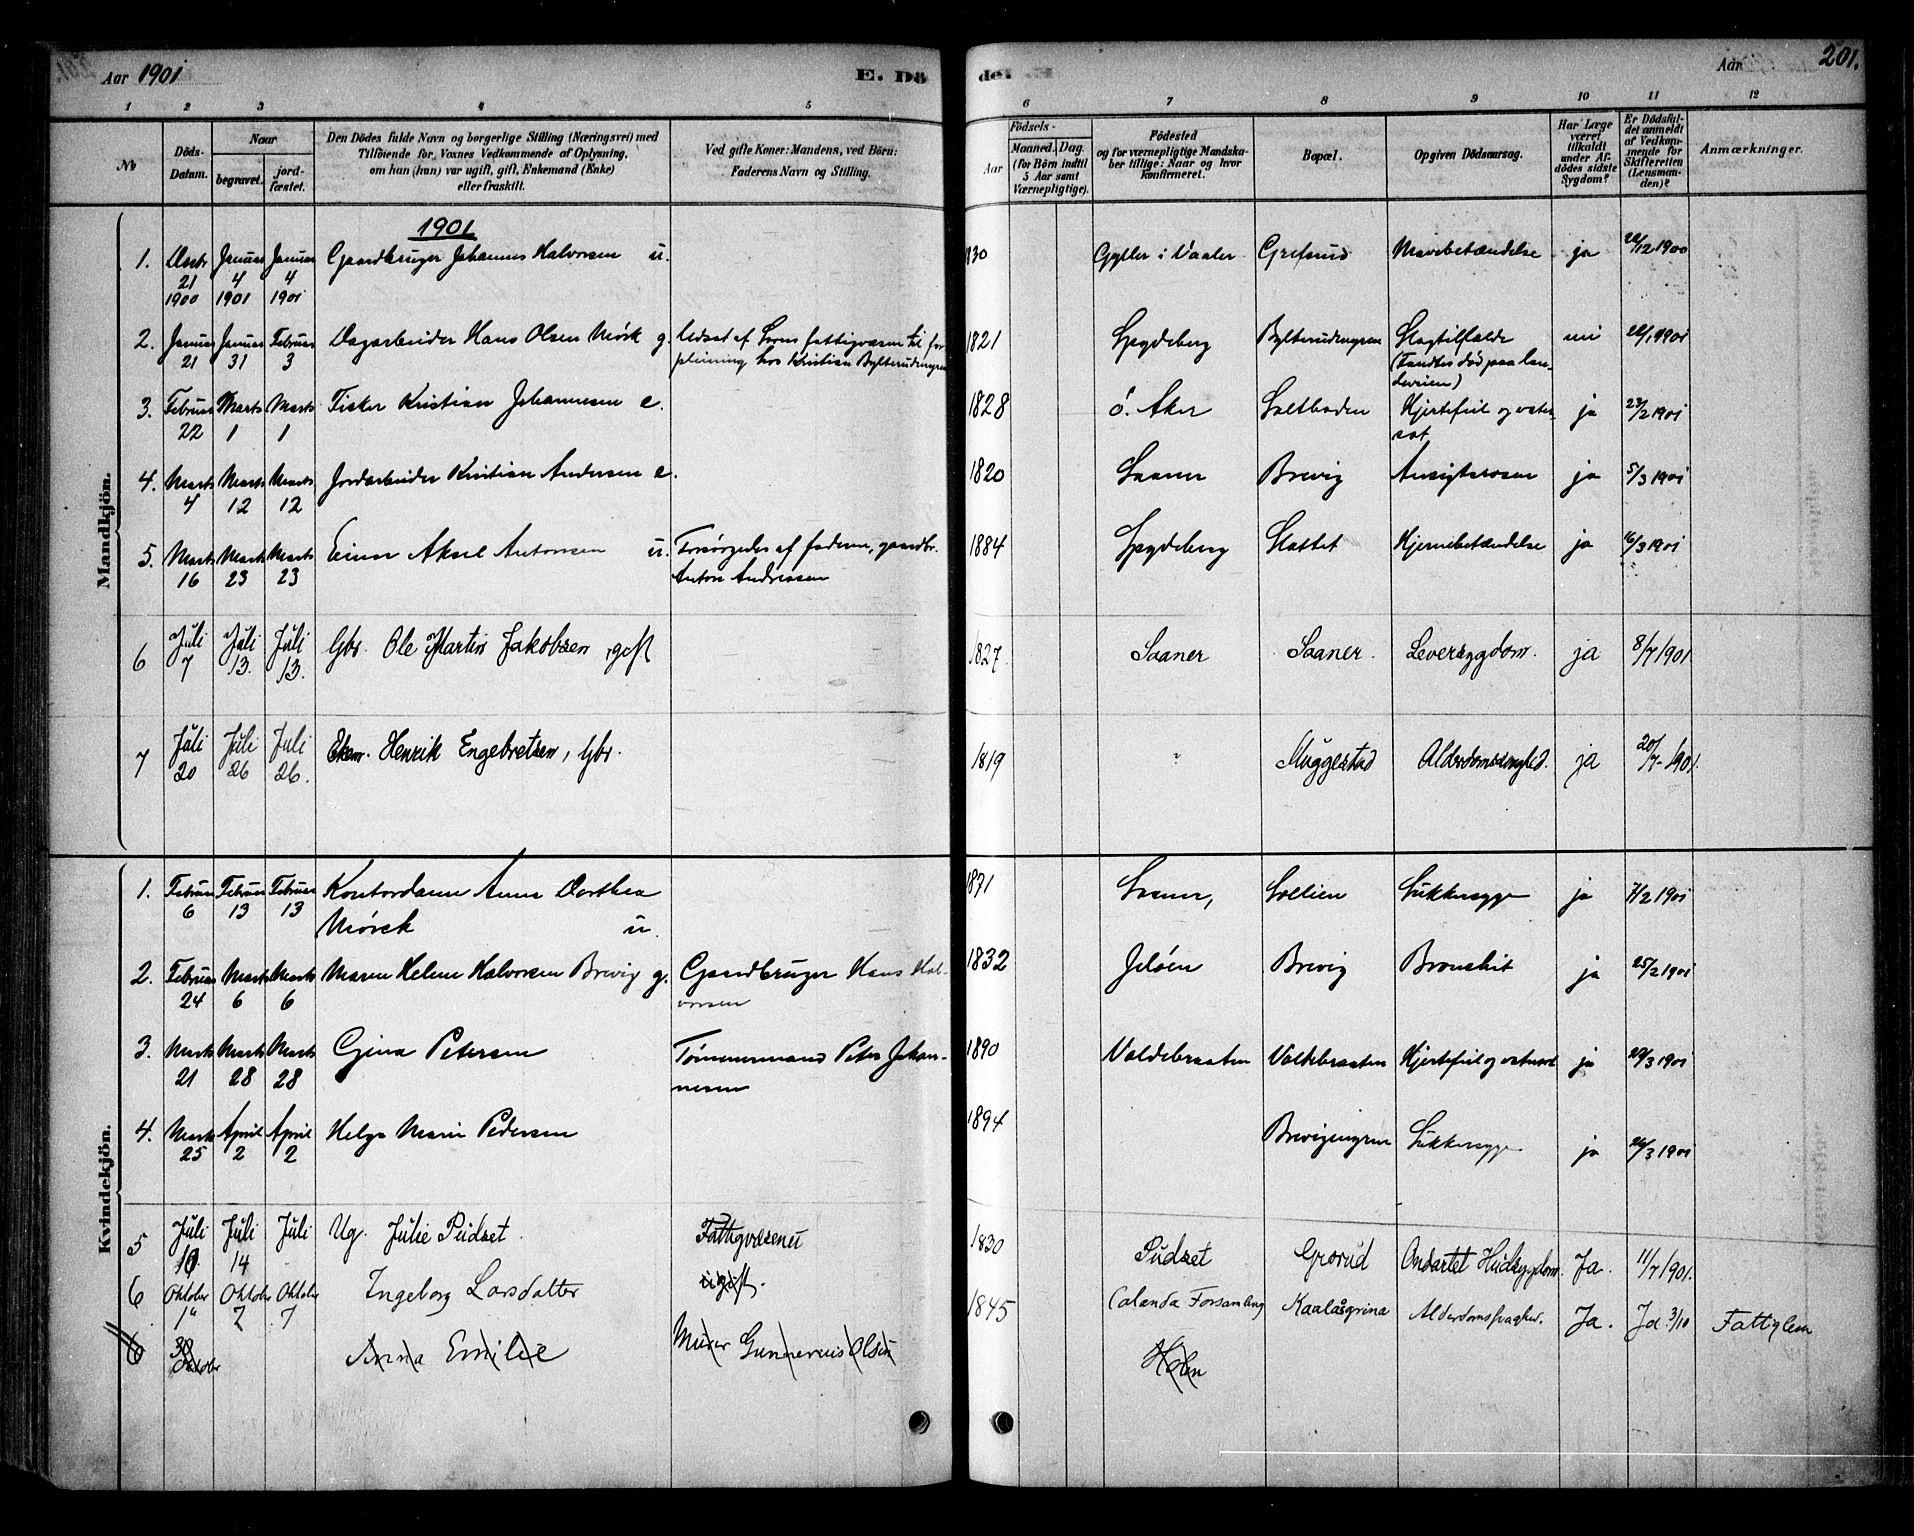 Aar 1901
E. Dö
de!
Aar
201.
1 2 3 4 5
6 7 8 9 10 11 12
No
Döds-
Datum.
Naar
begravet.
jord-
fæstet.
Den Dödes fulde Navn og borgerlige Stilling (Næringsvei) med
Tilföiende for Voxnes Vedkommende af Oplysning,
om han (hun) var ugift, gift, Enkemand (Enke)
eller fraskilt.
Ved gifte Koner: Mandens, ved Börn:
Faderens Navn og Stilling.
Födsels-
Aar
Maaned. Dag.
(for Börn indtil
5 Aar samt
Værnepligtige).
Födested
og for værnepligtige Mandska-
ber tillige: Naar og hvor
konfirmeret.
Bopæl.
Opgiven Dödsaarsag.
Har Læge
været
tilkaldt
under Af-
dödes sidste
Sygdom?
Er Dödsfal-
det anmeldt
af Vedkom-
mende for
Skifteretten
(Lensman-
den)?
Anmærkninger.
Mandkjön.
1901
1. Decbr 21 1900 Januar 4 1901 Januar 4 1901 Gaardbruger Johannes Halvorsen u. 1830 Gyller i Vaaler Grefsrud Mavebetændelse ja 22/12 1900
2. Januar 21 Januar 31 Februar 3 Dagarbeider Hans Olsen Mörk g. Udsat af Soons fattigvæsen til for
pleining hos Kristian Bylterudengen 1821 Spydeberg Bylterudengen Slagtilfælde
(Fandtes död paa lan-
deveien) nei 22/1 1901
3. Februar 22 Marts 1 Marts 1 Fisker Kristian Johannesen e. 1828 ö. Aker Saltboden Hjertefeil og vater-
sot ja 23/2 1901
4. Marts 4 Marts 12 Marts 12 Jordarbeider Kristian Andersen e. 1820 Saaner Brevig Ansigtsrosen ja 5/3 1901
5. Marts 16 Marts 23 Marts 23 Einar Aksel Antonsen u. Forsörgedes af faderen, gaardbr.
Anton Andreasen 1884 Spydeberg Slottet Hjernebetændelse ja 16/3 1901
6 Juli 7 Juli 13. Juli 13. Gbr. Ole Martin Jakobsen, gift 1827. Saaner Saaner. Leversygdom. ja 8/7 1901
7 Juli 20 Juli 26 Juli 26. Ekem. Henrik Engebretsen, Gbr. 1819 " Muggestad Alderdomssvaghed. ja 20/7-1901.
Kvindekjön.
1. Februar 6 Februar 13 Februar 13 Kontordame Anna Dorthea
Mörck u. 1871 Saaner, Sollien Sukkersyge ja 7/2 1901
2. Februar 24 Marts 6 Marts 6 Maren Helene Halvorsen Brevig g. Gaardbruger Hans Hal-
vorsen 1832 Jelöen Brevig Bronchit ja 25/2 1901
3. Marts 21 Marts 28 Marts 28 Gina Petersen Tömmermand Peter Johan-
nesen 1890 Valdebraaten Valdebraaten Hjertefeil og vatersot ja 22/3 1901
4. Marts 25 April 2 April 2 Helga Marie Pedersen 1894 Brevigengen Sukkersyge. ja 26/3 1901
5 Juli 10 Juli 14 Juli Ug. Julie Pudset. Fattigvæsenet 1830 Pudset Grorud Ondartet Hudsygdom. Ja. 11/7 1901.
6 Oktober 1" Oktober 7 Oktober 7 Ingeborg Larsdatter ugift. 1845 Kaalåsgrina Alderdomssvaghed. Ja. Ja 3/10 Fattiglem
6 30 Oktober Anna Emilie Murer Gunnerius Olsen Holen